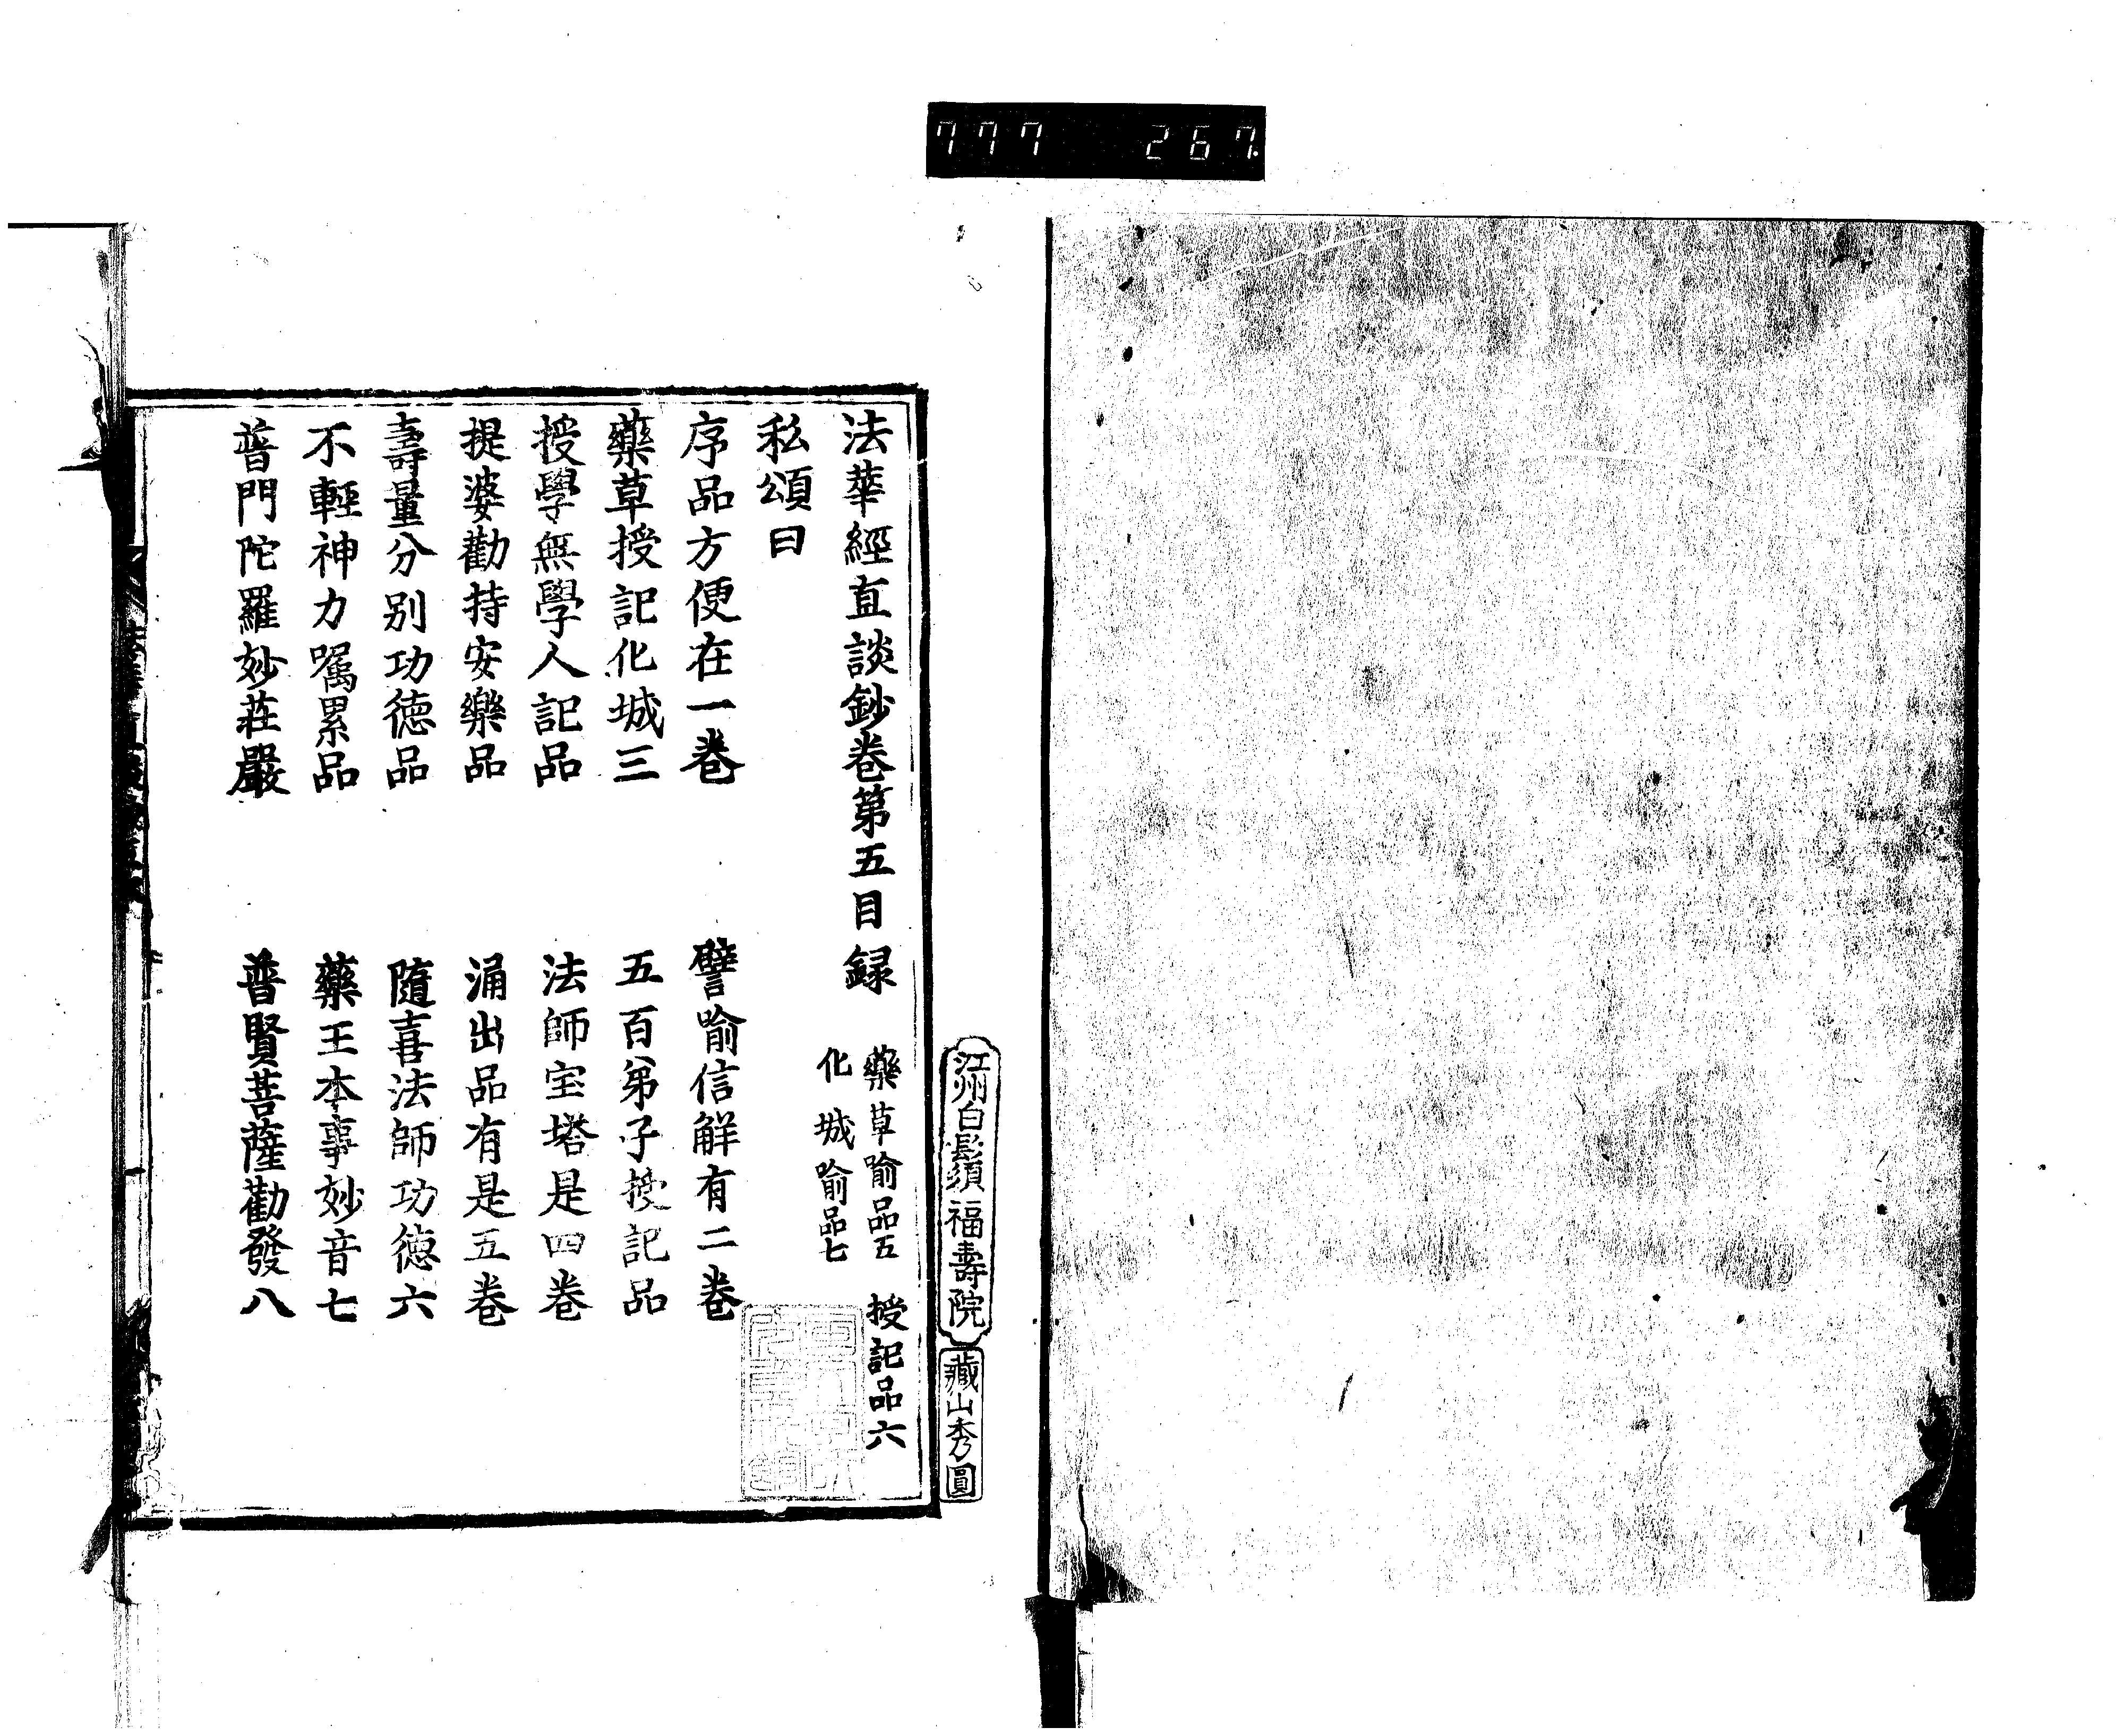 777 267
江州白鬚福壽院
藏山秀圓
法華經直談鈔卷第五目録
藥草喻品五 授記品六
化城喻品七
私頌曰
序品方便在一卷 譬喻信解有二卷
藥草授記化城三 五百弟子授記品
授學無學人記品 法師宝塔是四卷
提婆勸持安樂品 涌出品有是五卷
壽量分别功德品 隨喜法師功德六
不輕神力囑累品 藥王本事妙音七
普門陀羅妙莊嚴 普賢菩薩勸發八